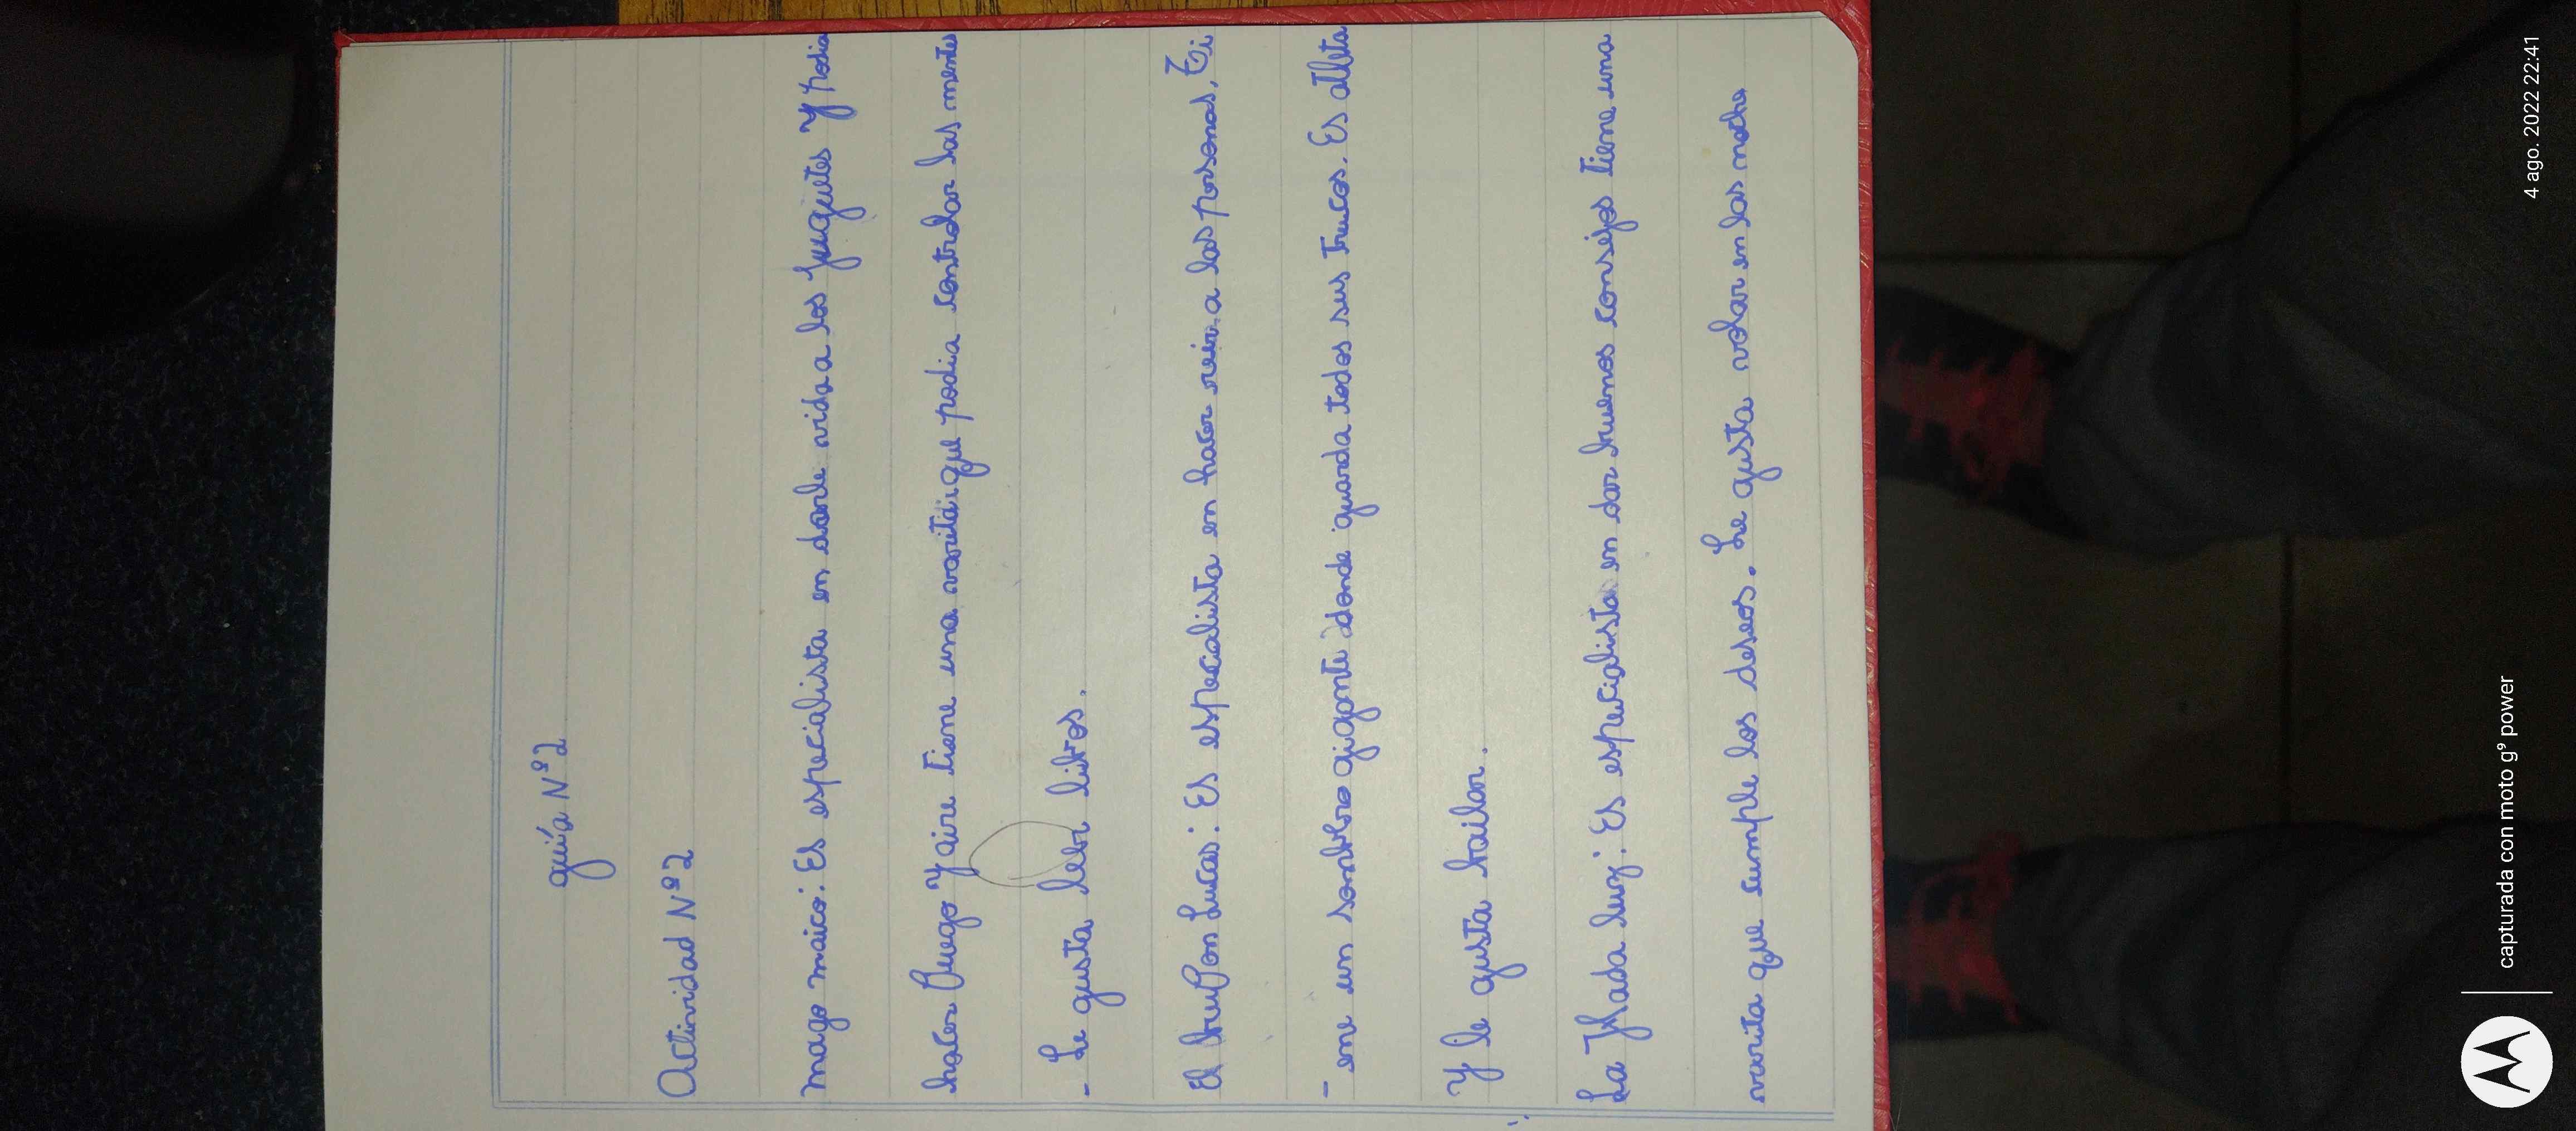 guía N°2
Actividad N°2
mago maico: Es especialista en darle vida a los juguetes y podia
hacer fuego y aire tiene una varita que podia controlar las mentes
- Le gusta leer libros.
El bufon Lucas: Es especialista en hacer reir a las personas, Ti
- ene un sonbrero gigante donde guarda todos sus trucos. Es atleta
y le gusta bailar.
La Hada luz: Es especialista en dar buenos consejos tiene una
varita que cumple los deseos. Le gusta volar en las noche
capturada con moto g⁹ power
4 ago. 2022 22:41